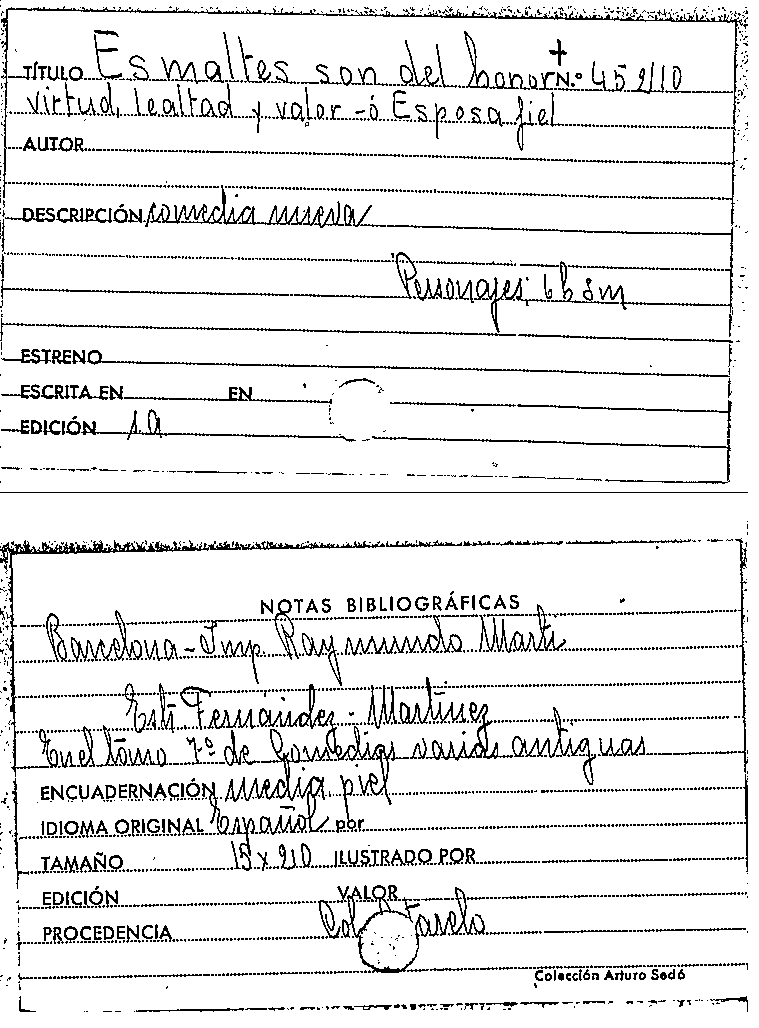 TÍTULO Esmaltes son del honor N.º 45210
virtud, lealtad y valor - ó Esposa fiel
AUTOR
DESCRIPCIÓN comedia nueva
Personajes; 6 h 3 m
ESTRENO
ESCRITA EN EN
EDICIÓN 1a
NOTAS BIBLIOGRÁFICAS
Barcelona - Imp. Raymundo Marti
Fernández - Martínez
En el tomo 7º de Comedias varias antiguas
ENCUADERNACIÓN media piel
IDIOMA ORIGINAL Español por
TAMAÑO 15 x 210 ILUSTRADO POR
EDICIÓN VALOR
PROCEDENCIA Col.
Colección Arturo Sedó